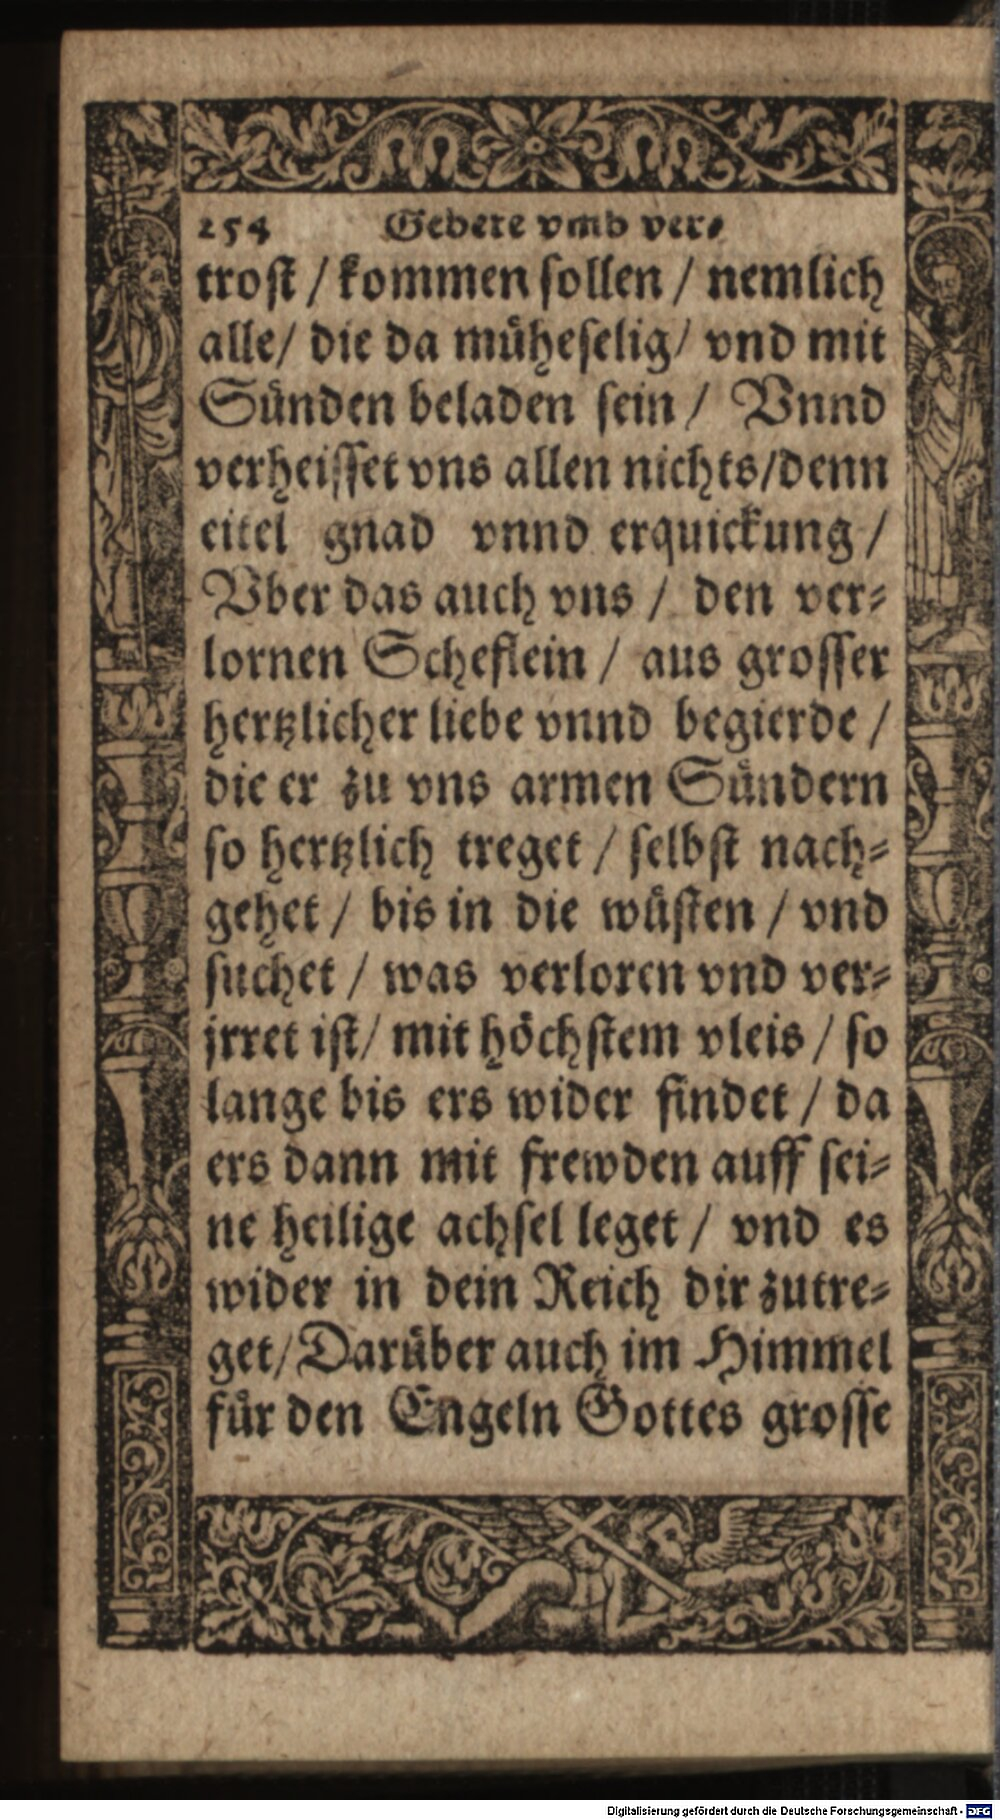 254 Gebete vmb ver⸗
trost / kommen sollen / nemlich
alle / die da müheselig / vnd mit
Sünden beladen sein / Vnnd
verheisset vns allen nichts / denn
eitel gnad vnnd erquickung /
Vber das auch vns / den ver⸗
lornen Scheflein / aus grosser
hertzlicher liebe vnnd begierde /
die er zu vns armen Sündern
so hertzlich treget / selbst nach⸗
gehet / bis in die wüsten / vnd
suchet / was verloren vnd ver⸗
jrret ist / mit höchstem vleis / so
lange bis ers wider findet / da
ers dann mit frewden auff sei⸗
ne heilige achsel leget / vnd es
wider in dein Reich dir zutre⸗
get / Darüber auch im Himmel
für den Engeln Gottes grosse
Digitalisierung gefördert durch die Deutsche Forschungsgemeinschaft - DFG